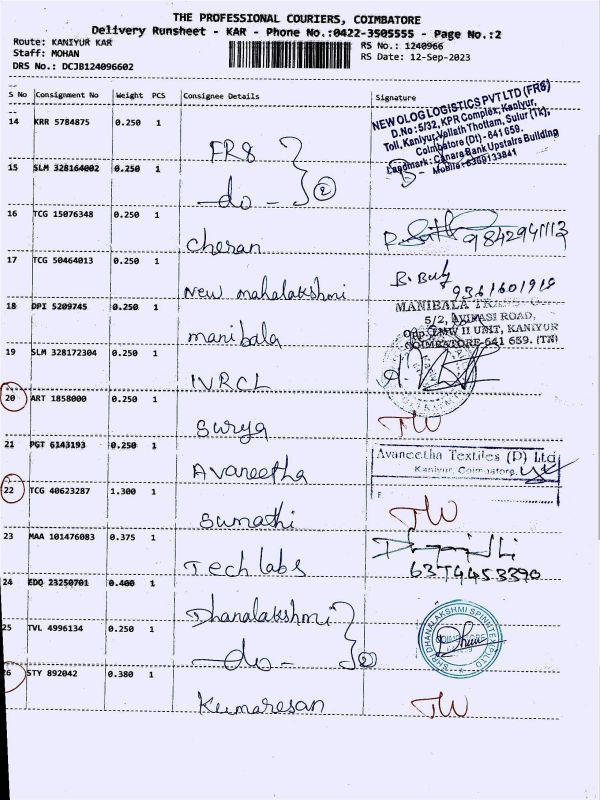 THE PROFESSIONAL COURIERS, COIMBATORE
Delivery Runsheet - KAR - Phone No.:0422-3505555 - Page No.:2
Route: KANIYUR KAR
RS No.: 1240966
Staff: MOHAN
RS Date: 12-Sep-2023
DRS No.: DCJB124096602
S No Consignment No Weight PCS Consignee Details Signature
NEW OLOG LOGISTICS PVT LTD (FR8)
D.No: 5/32, KPR Complex, Kaniyur,
Toll, Kaniyur, Vellath Thottam, Sulur (Tk),
Coimbatore (Dt) - 641 659.
Landmark: Canara Bank Upstairs Building
14 KRR 5784875 0.250 1
FR8
15 SLM 328164002 0.250 1
-do- 2
16 TCG 15076348 0.250 1
Cheran 9842941113
17 TCG 50464013 0.250 1
New mahalakshmi
18 DPI 5209745 0.250 1
MANIBALA
5/2, AVINASI ROAD,
II UNIT, KANIYUR
COIMBATORE-641 659. (TN)
manibala
19 SLM 328172304 0.250 1
IVRCL
20 ART 1858000 0.250 1
Surya TW
21 PGT 6143193 0.250 1
Avaneetha Textiles (P) Ltd
Kaniyur, Coimbatore.
Avaneetha
22 TCG 40623287 1.300 1
Sumathi TW
23 MAA 101476083 0.375 1
Tech labs
24 EDQ 23250701 0.400 1
Dhanalakshmi
25 TVL 4996134 0.250 1
-do- 2
26 STY 892042 0.380 1
Kumaresan TW